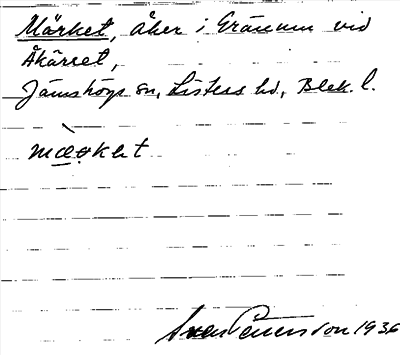 Märket, åker i Gränum vid
Åkärret,
Jämshögs sn, Listers hd, Blek. l.
mærkət
Sven Petersson 1936